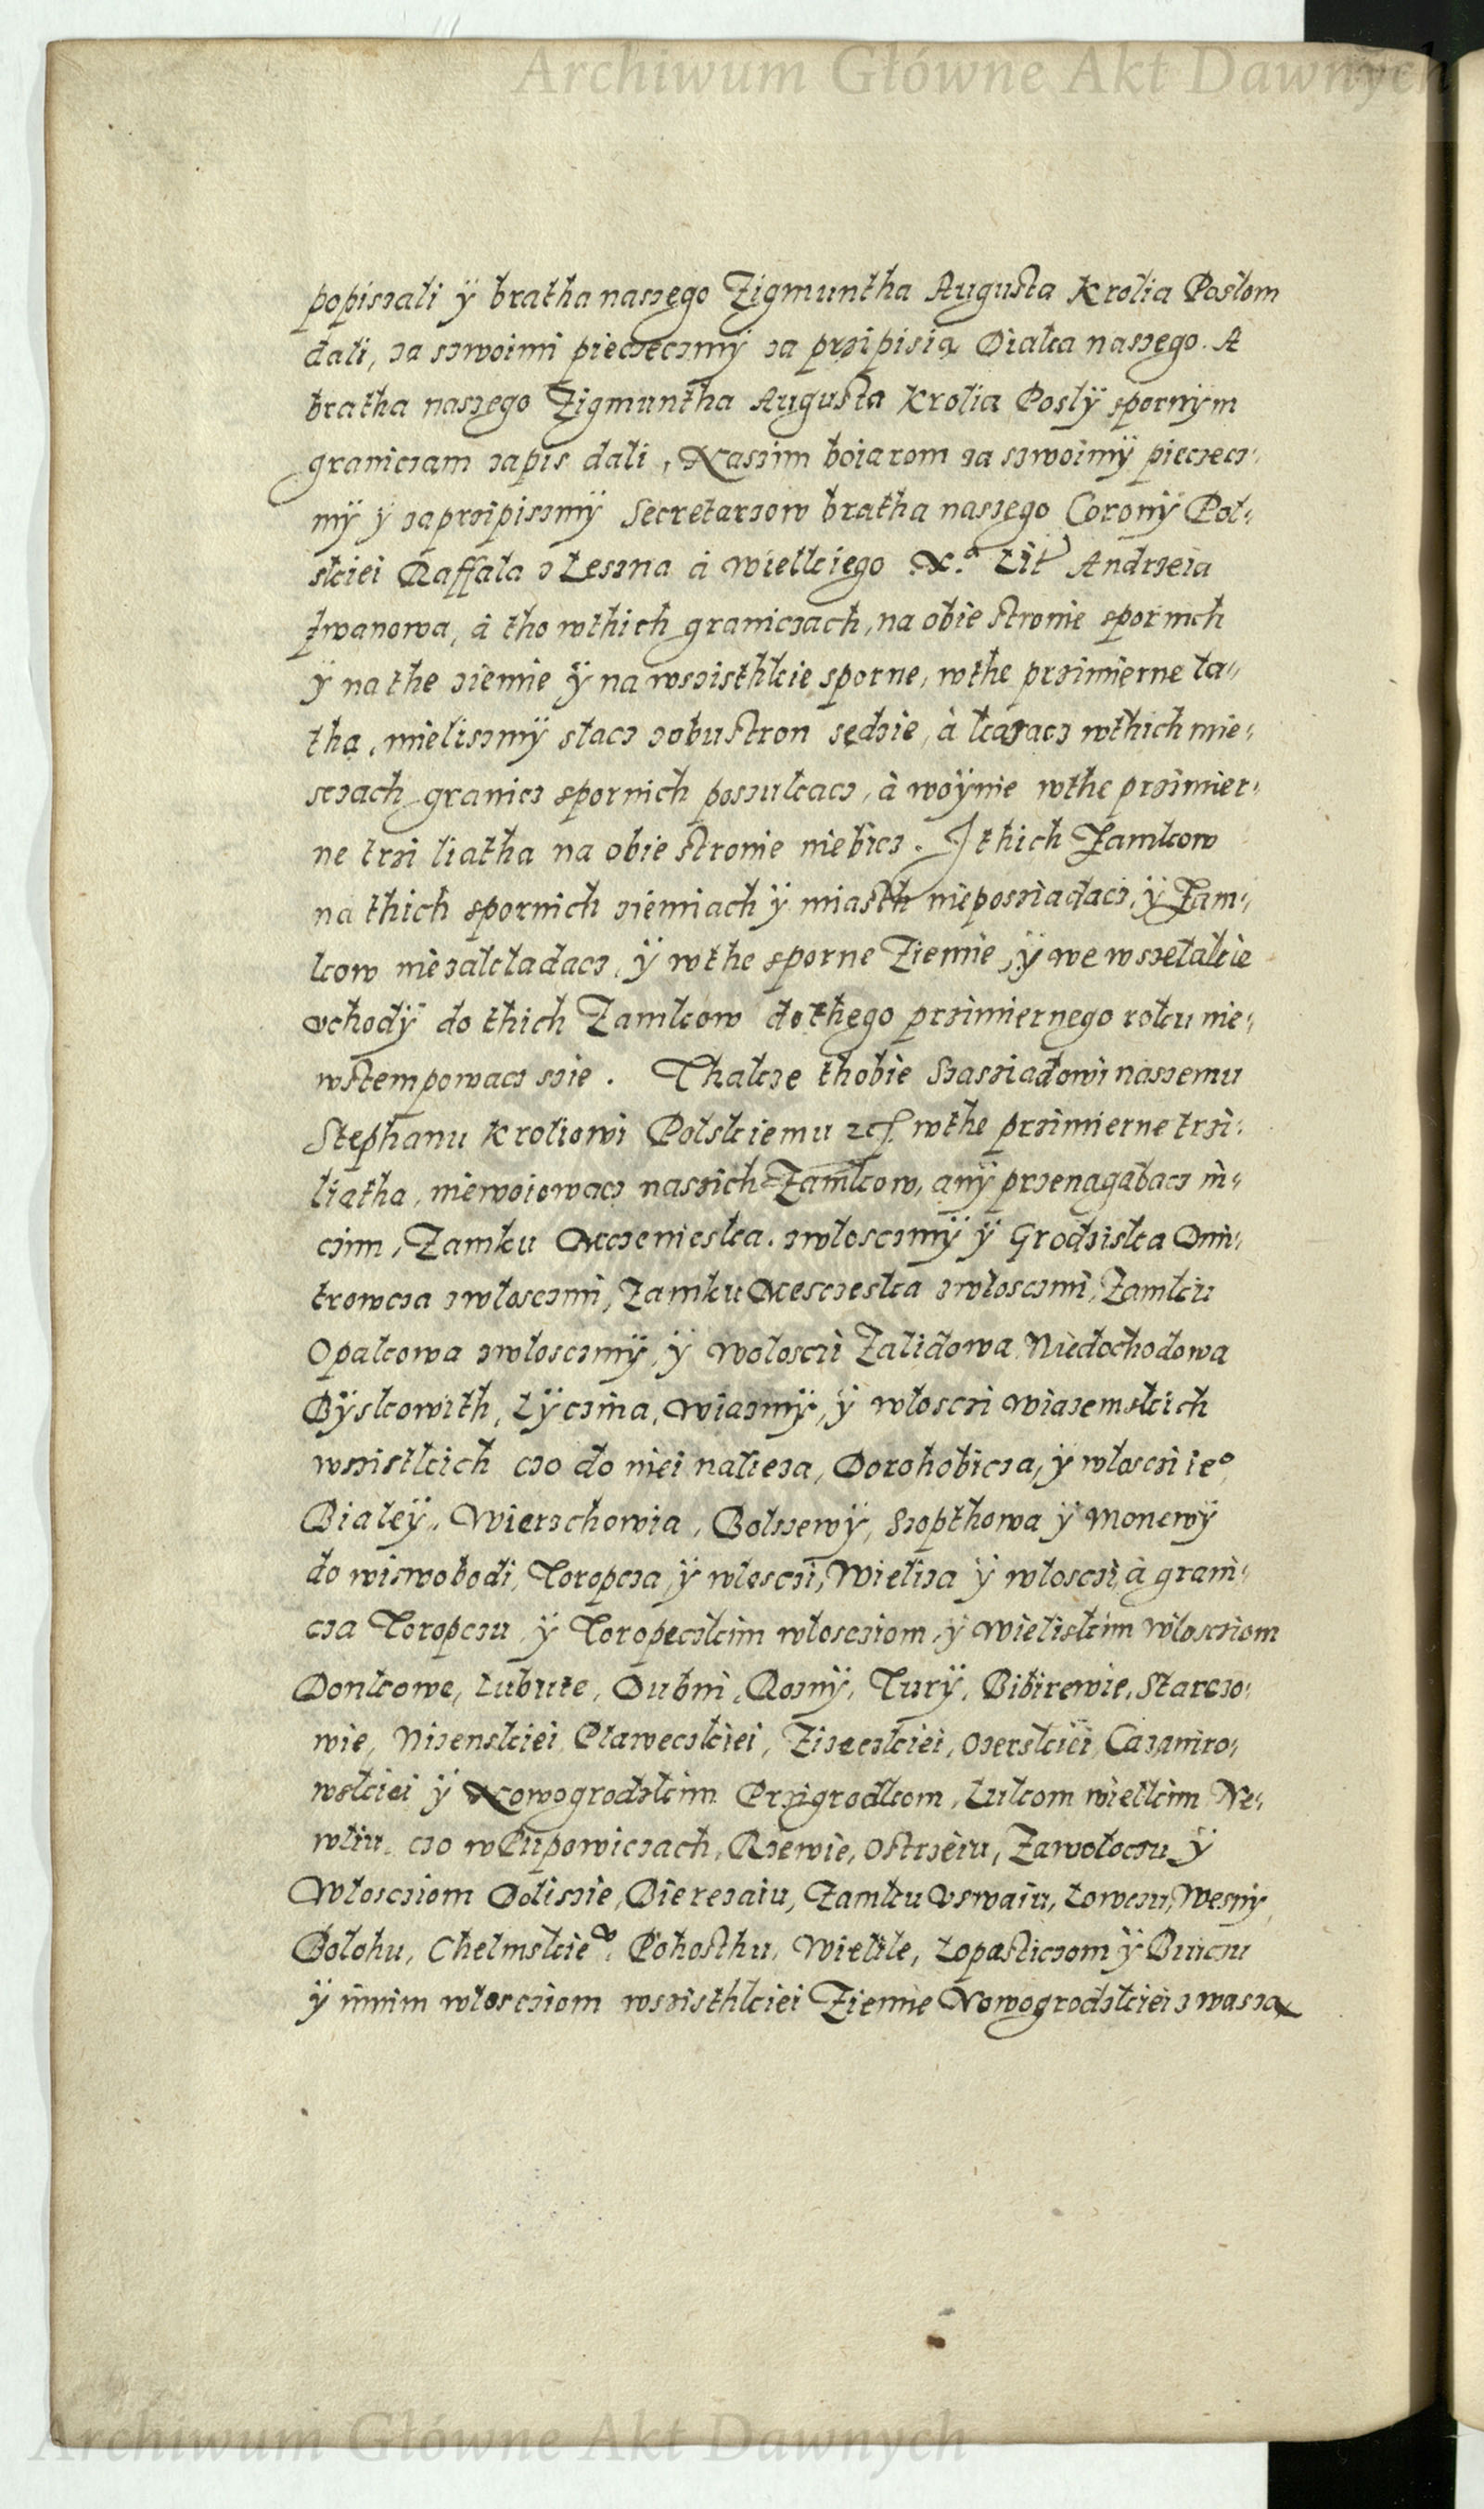 Archiwum Główne Akt Dawnych
popiszali ÿ bratha naszego Zigmuntha Augusta Krolia Posłom
dali, za szwoimi pieczęczmÿ za przipisią Diaka naszego. A
bratha naszego Zigmuntha Augusta Krolia Posłÿ spornÿm
graniczam zapis dali, Naszim boiarom za szwoimÿ pieczecz-
mÿ ÿ zaprzipiszmÿ Secretarzow bratha naszego Coronÿ Pol-
skiei Raffała z Leszna à Wielkiego X.a Lit Andrzeia
Iwanowa, à tho wthich graniczach, na obie stronie spornich
ÿ na the ziemie ÿ na wszisthkie sporne, wthe przimierne la-
tha, mieliszmÿ słacz zobustron sędzie, à kazacz wthich mie-
sczach granicz spornich poszukacz, à woÿnie wthe przimier-
ne trzi liatha na obie stronie niebicz. I thich Zamkow
na thich spornich ziemiach ÿ miasth nieposziadacz, ÿ Zam-
kow niezakładacz, ÿ wthe sporne Ziemie, ÿ we wszelakie
vchodÿ do thich Zamkow dothego przimiernego roku nie-
wstempowacz szie. Thakze thobie Szasziadowi naszemu
Stephanu Kroliowi Polskiemu etc wthe przimierne trzi-
liatha, niewoiowacz naszich Zamkow, anÿ przenagabacz ni-
czim, Zamku Mczenieska. zwłosczmÿ ÿ Grodziska Dmi-
trowcza zwłosczmi, Zamku Mesczeska zwłosczmi, Zamku
Opakowa zwłosczmÿ, ÿ Wołosczi Zalidowa Niedochodowa
Bÿskowith, Lÿczina, Wiazmÿ, ÿ włosczi Wiazemskich
wszistkich czo do niei należa, Dorohobicza, ÿ włosczi ieo
Białeÿ, Wierzchowia, Bolszewÿ, Szopthowa ÿ Monewÿ
do wiswobodi, Toropcza, ÿ włosczi, Wieliza ÿ włosczi, à grani-
cza Toropczu, ÿ Toropeczkim włoscziom, ÿ Wieliskim Włoscziom
Donkowe, Lubute, Dubni, Roznÿ, Turÿ, Bibirewie, Starczo-
wie, Nizenskiei Pławeczkiei, Zizeczkiei, Ozerskiei, Cazamiro-
wskiei ÿ Nowogrodzkim Przigrodkom, Lukom wielkim Ne-
wliu. czo w Lupowiczach, Rzewie, Ostrzeiu, Zawołoczu ÿ
Włoscziom Dolissie, Bierezaiu, Zamku Vswaiu, Łowczu, Wesnÿ,
Bołohu, Chełmskieo, Pohosthu, Wielile, Łopasticzom ÿ Buiczu
ÿ innim włoscziom wszisthkiei Ziemie Nowogrodzkiei z wasza
Archiwum Główne Akt Dawnych